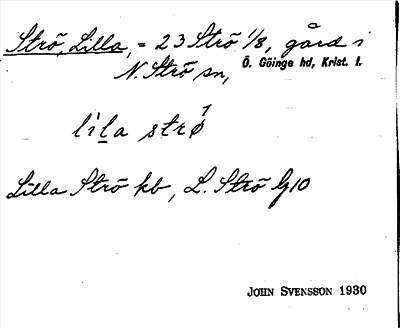 Strö, Lilla, = 23 Strö 1/8, gård i
N. Strö sn, Ö. Göinge hd, Krist. l.
lìl̠a strǿ1
Lilla Strö kb, L. Strö G10
JOHN SVENSSON 1930